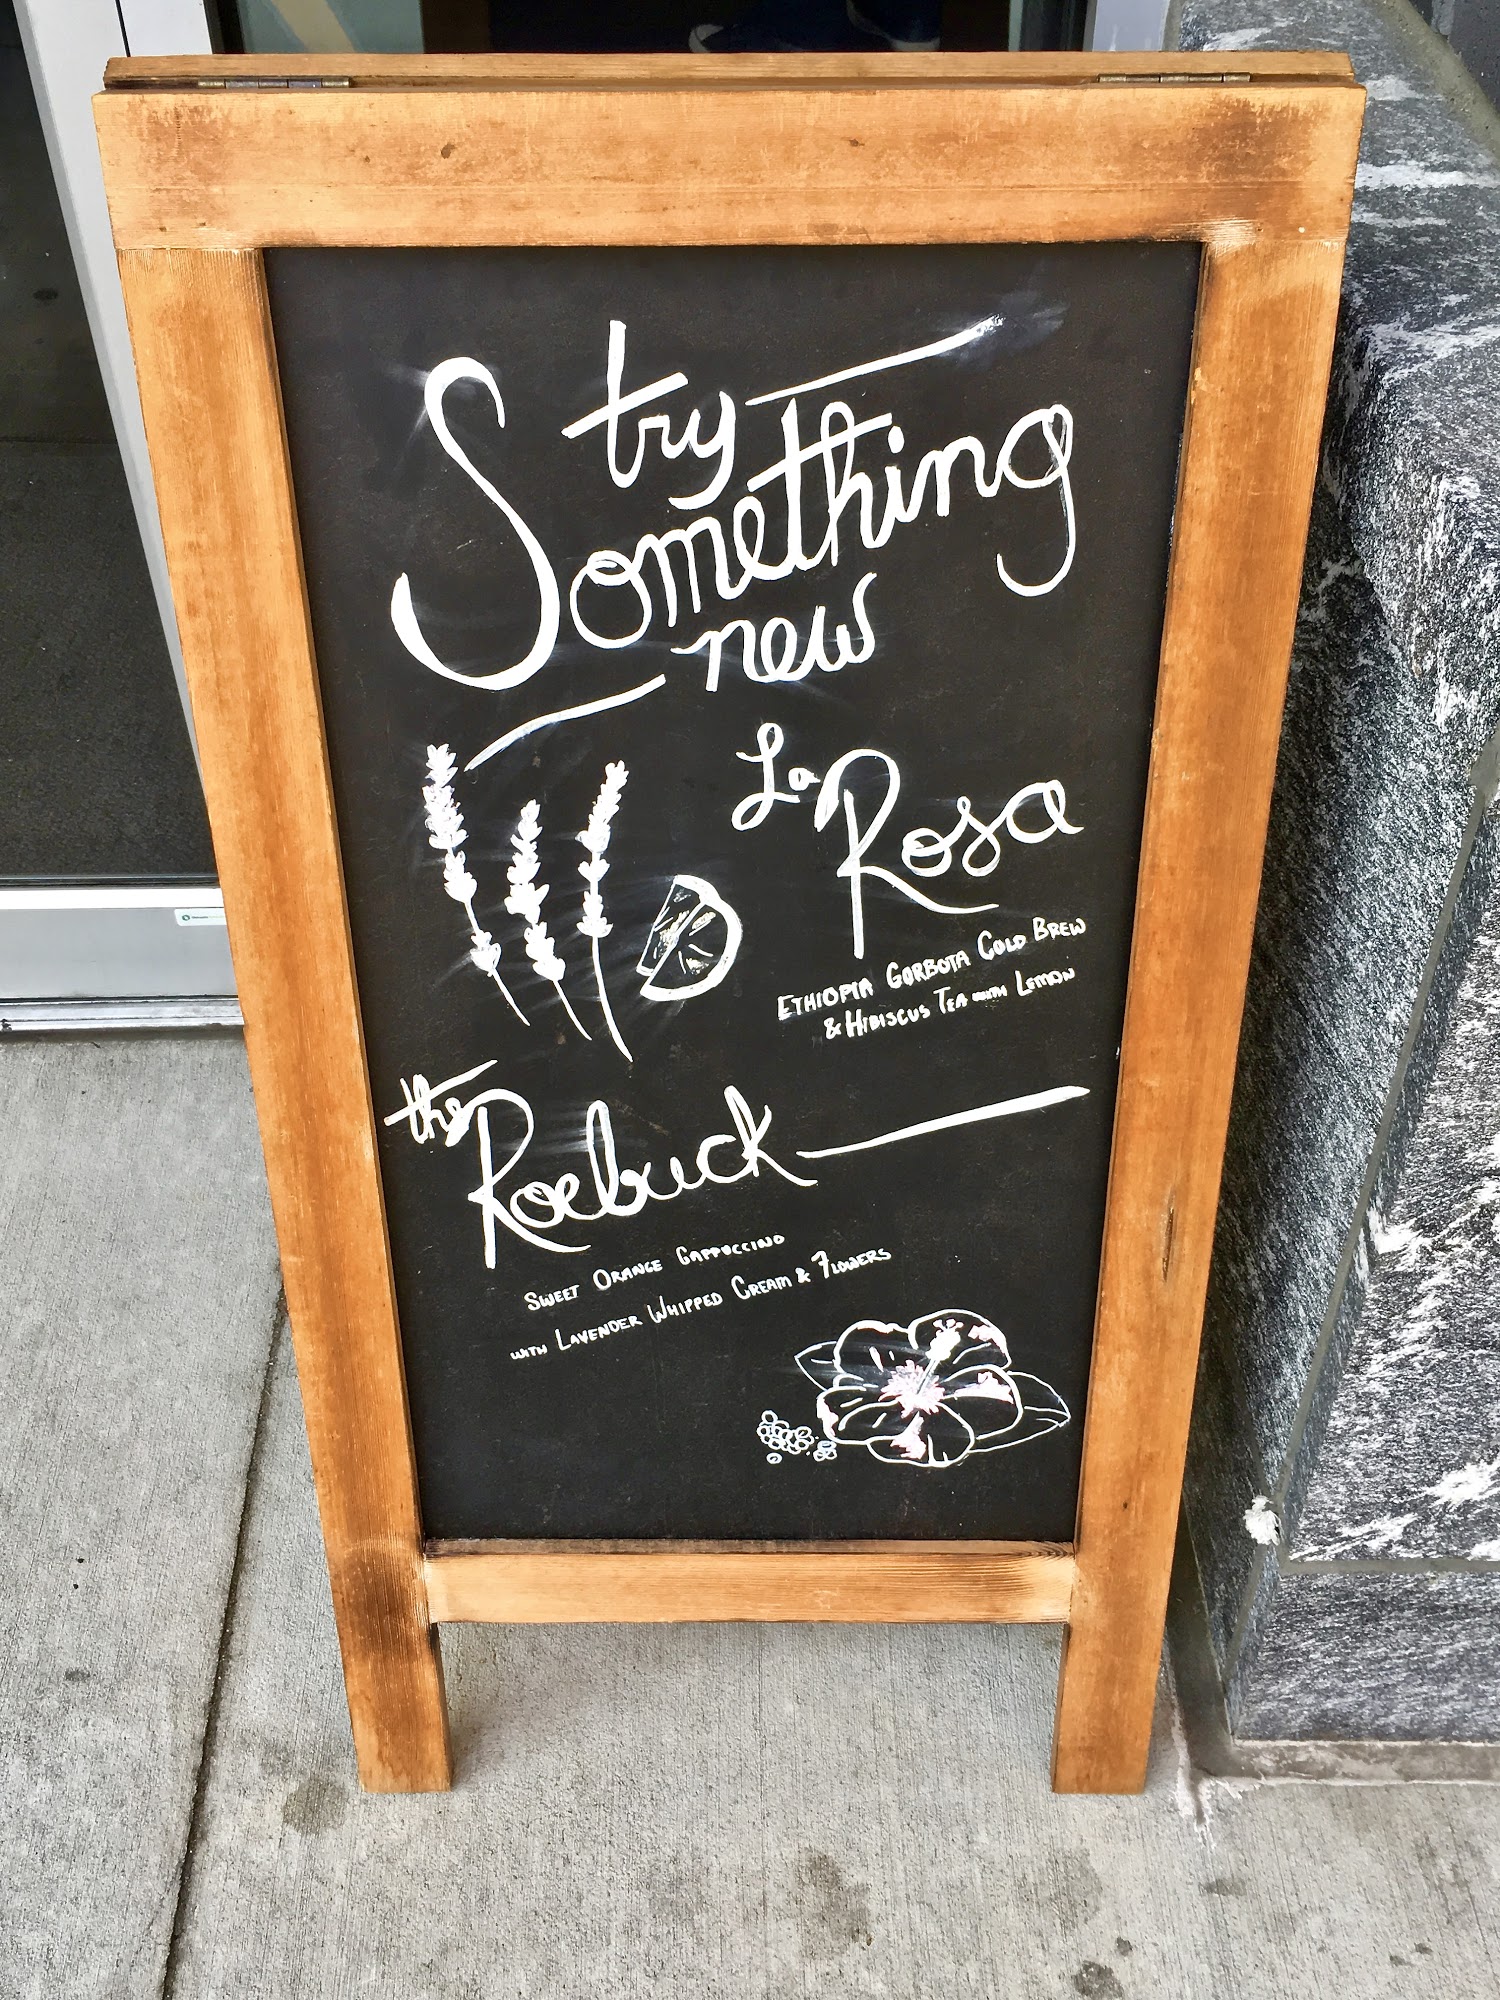 try
Something
new
La Rosa
ETHIOPIA GORBOTA COLD BREW
& HIBISCUS TEA WITH LEMON
the Roebuck
SWEET ORANGE CAPPUCCINO
WITH LAVENDER WHIPPED CREAM & FLOWERS